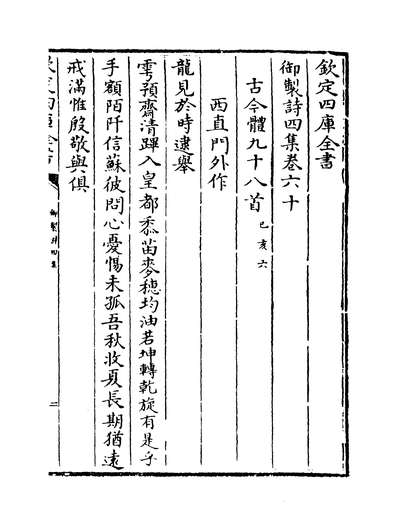 欽定四庫全書
御製詩四集卷六十
古今體九十八首己亥六
西直門外作
龍見於時逮舉
雩預齋清蹕入皇都黍苗麥穗均油若坤轉乾旋有是乎
手額陌阡信蘇彼問心憂惕未孤吾秋收夏長期猶遠
戒滿惟殷敬與俱
御製詩四集